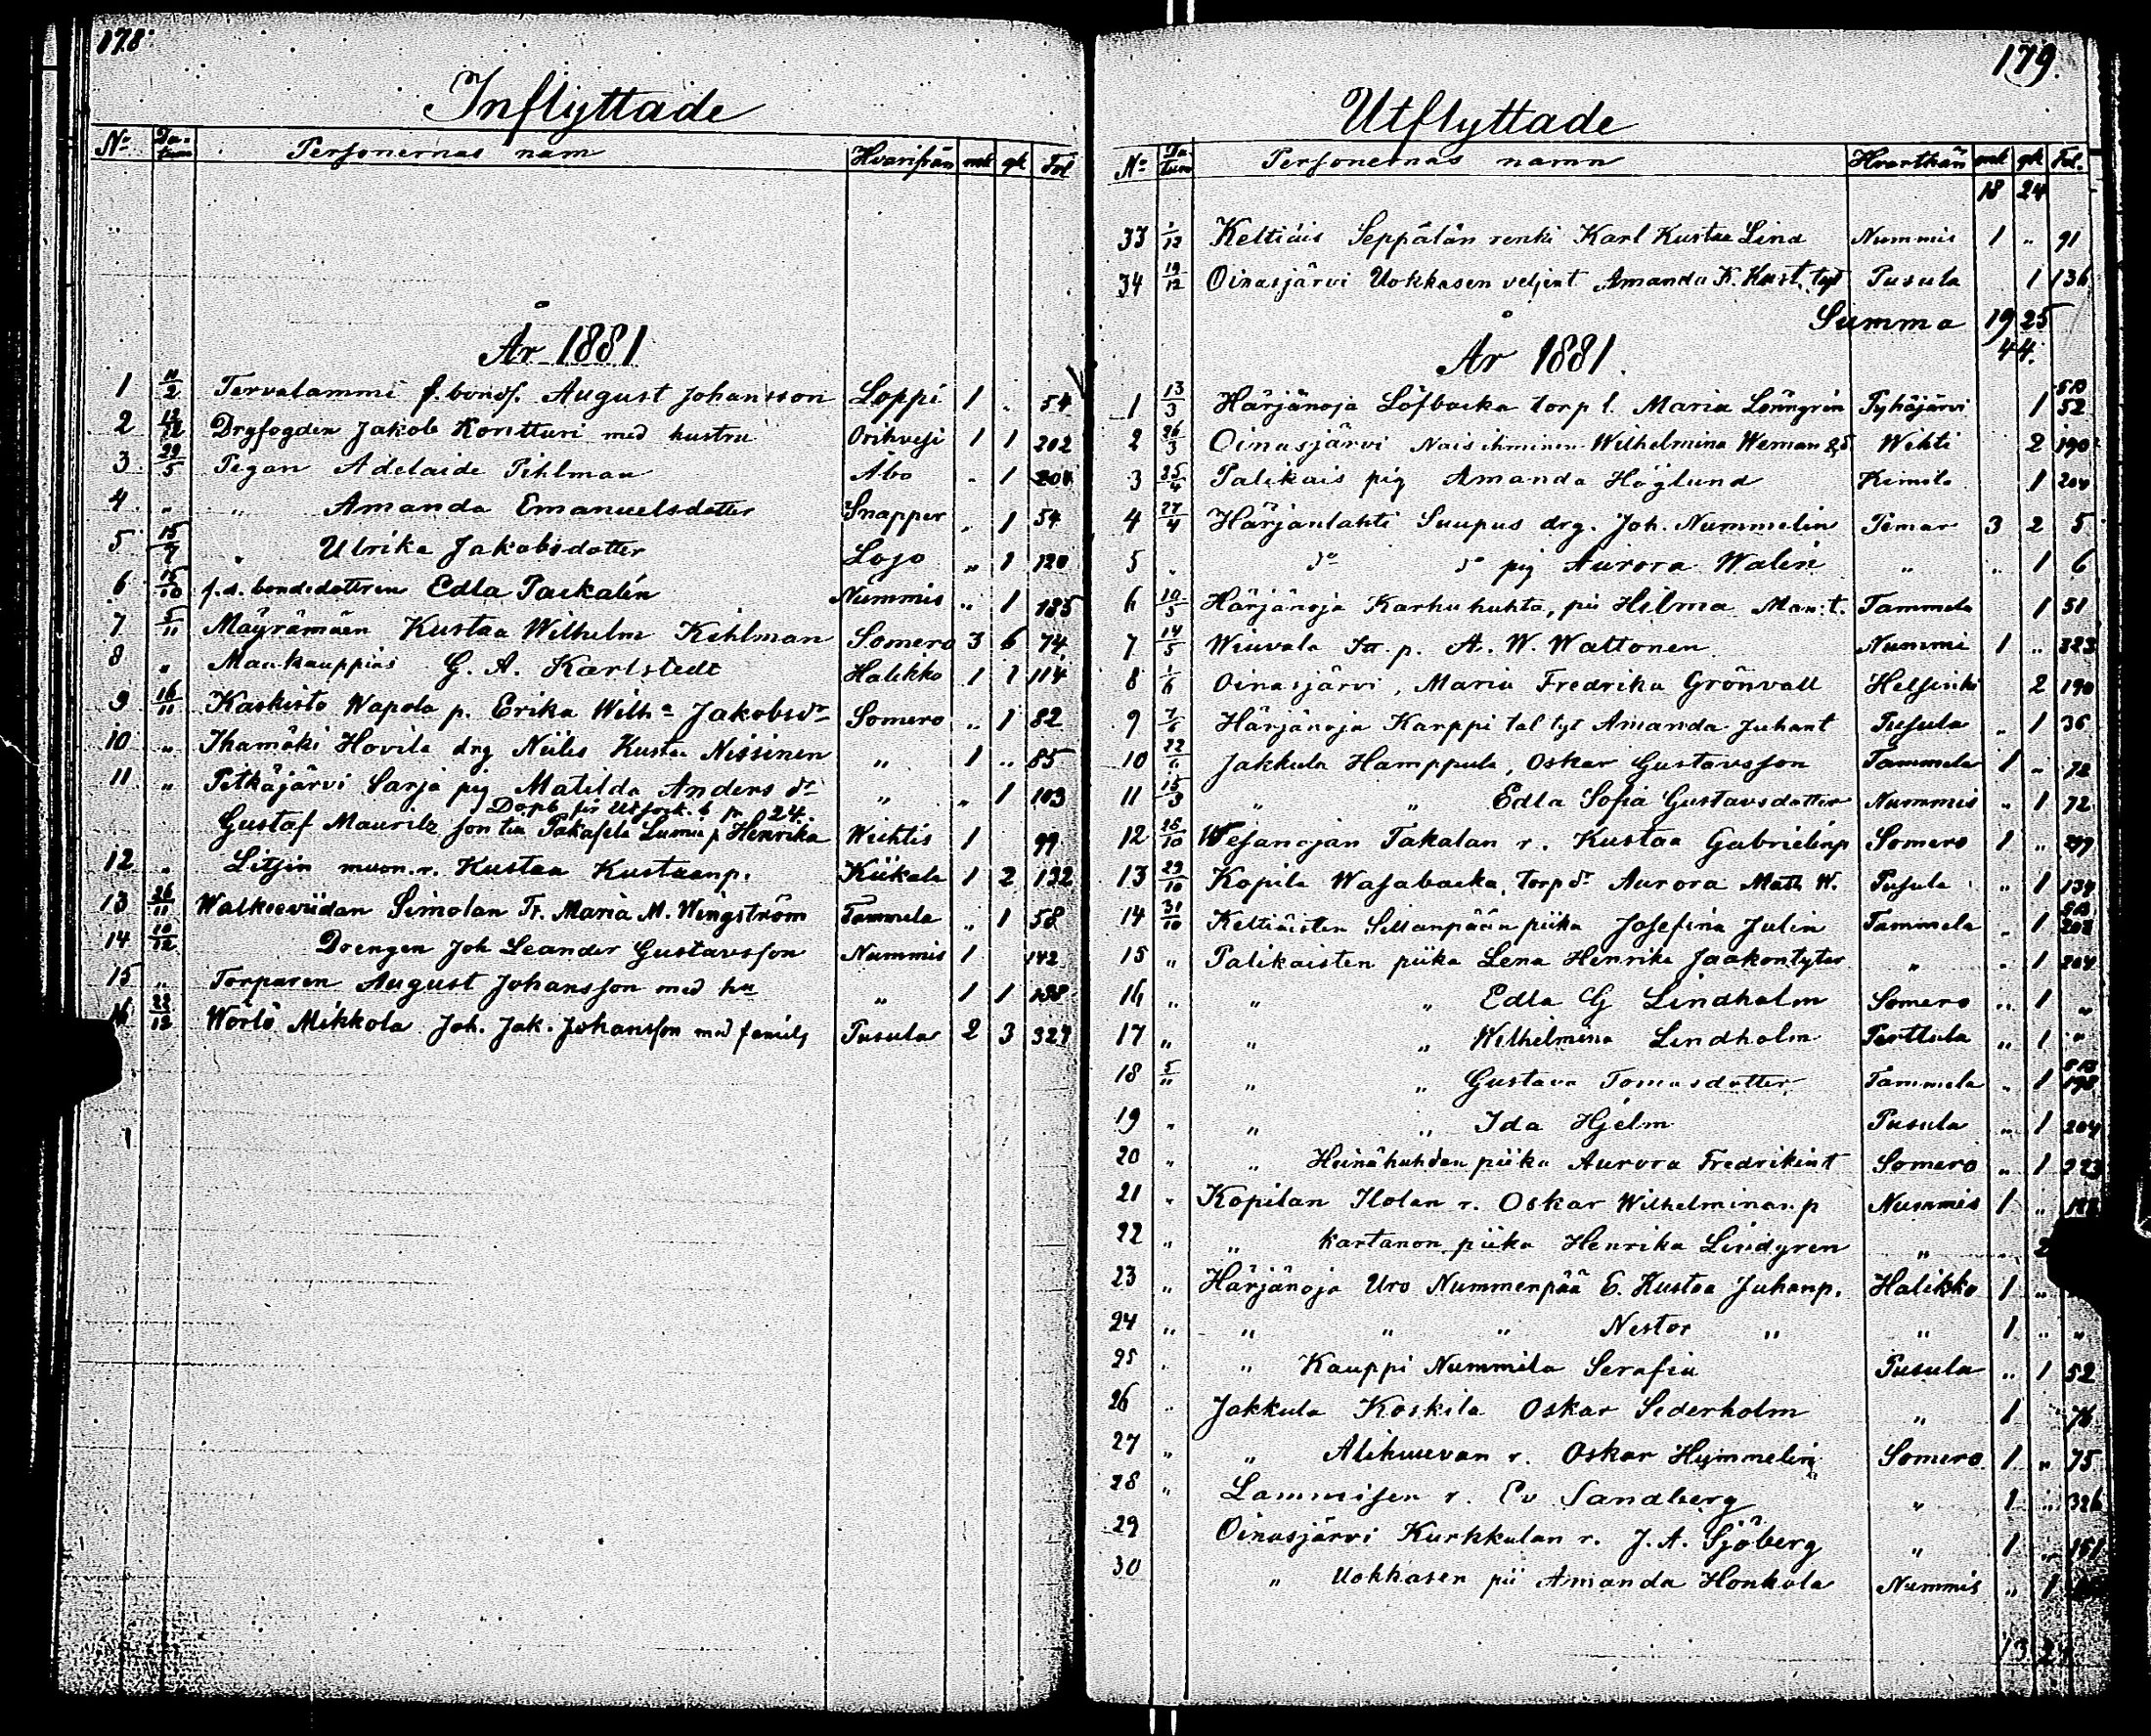 178.
Inflyttade
No Datum Personernas nam Hvarifrån mk qk Fol
År 1881
1 11/2 Tervalammi f. bonds. August Johansson Loppi 1 „ 54
2 12/12 Drgfogden Jakob Kontturi med hustru Orihvesi 1 1 202
3 29/5 Pigan Adelaide Pihlman Åbo „ 1 204
4 „ „ Amanda Emanuelsdotter Snapper „ 1 54
5 15/7 „ Ulrika Jakobsdotter Lojo „ 1 120
6 15/10 f.d. bondedottren Edla Packalén Nummis „ 1 185
7 5/11 Mäyrämäen Kustaa Wilhelm Kihlman Somero 3 6 74
8 „ Maakauppias G. A. Karlstedt Halikko 1 1 114
9 16/11 Kaskisto Wapola p. Erika Wilha Jakobsdr Somero „ 1 82
10 „ Ihamäki Hovila drg Niiles Kustaa Nissinen „ 1 „ 85
11 „ Pitkäjärvi Sarja pig Matilda Anders dr „ „ 1 103
Dopb. för utfärd. 6 pr 24.
Gustaf Mauritz son till Henrika Wichtis 1 99
12 „ Litjin muon. r. Kustaa Kustaanp. Kiikala 1 2 132
13 26/11 Walkeeviidan Simolan Tr. Maria M. Wingström Tammela „ 1 58
14 10/12 Doengen Joh Leander Gustavsson Nummis 1 142
15 „ Torparen August Johansson med hu „ 1 1 138
16 22/12 Wörlö Mikkola Joh. Jak. Johansson med familj Pusula 2 3 327
179.
Utflyttade
No Datum Personernas namn Hvarthän mk qk Fol.
18 24
33 1/12 Keltiäis Seppälän renki Karl Kustaa Lind Nummis 1 „ 91
34 19/12 Oinasjärvi Uokkasen veljent Amanda K. Kust. tyt Pusula 1 136
Summa 19 25
44.
År 1881.
1 13/3 Härjänoja Löfbacka torp l. Maria Lönngrén Pyhäjärvi 1 52
2 26/3 Oinasjärvi Naisihminen Wilhelmina Weman Wihti 2 190
3 25/4 Palikais pig Amanda Höglund Kimito 1 204
4 27/4 Härjanlahti Suupus drg. Joh. Nummelin Pemar 3 2 5
5 „ do do pig Aurora Walén „ „ 1 6
6 10/5 Härjänoja Karhuhuhta, pii Hilma Man.t. Tammela 1 51
7 14/5 Wiuvala Itt. p. A. W. Waltonen Nummi 1 „ 323
8 1/6 Oinasjärvi, Maria Fredrika Grönvall Helsinki 2 190
9 7/6 Härjänoja Karppi tal tyt Amanda Juhant Pusula „ 1 36
10 22/6 Jakkula Hamppula, Oskar Gustavsson Tammela 1 „ 72
11 15/3 „ „ Edla Sofia Gustavsdotter Nummis „ 1 72
12 15/10 Wesanojan Takalan r. Kustaa Gabrielinp Somero 1 „ 297
13 29/10 Kopila Wasabacka, torp dr Aurora Math W. Pusula „ 1 134
14 31/10 Keltiäisten Sillanpään piika Josefina Julin Tammela „ 1 202
15 „ Palikaisten piika Lena Henrika Jaakontyter „ „ 1 204
16 „ „ „ Edla G Lindholm Somero „ 1 „
17 „ „ „ Wilhelmina Lindholm Perttula „ 1 „
18 5/11 „ „ Gustava Tomasdotter Tammela „ 1 198
19 „ „ „ Ida Hjelm Pusula „ 1 204
20 „ „ Heinähuhdan piika Aurora Fredrikint Somero „ 1 223
21 „ Kopilan Ilolan r. Oskar Wilhelminan.p Nummis 1 „
22 „ „ kartanon piika Henrika Lindgren „ „ 2
23 „ Härjänoja Uro Nummenpää E. Kustaa Juhanp. Halikko 1 „
24 „ „ „ „ Nestor „ „ 1 „ „
25 „ „ Kauppi Nummila Serafia Pusula „ 1 52
26 „ Jakkula Koskila Oskar Sederholm „ 1 „ 76
27 „ „ Alihuuvan r. Oskar Hymmelin Somero 1 „ 75
28 „ Lammisen r. Ev Sandberg „ 1 „ 326
29 Oinasjärvi Kurkkulan r. J. A. Sjöberg „ 1 „ 151
30 „ Uokkasen pii Amanda Honkala Nummis „ 1
13 2